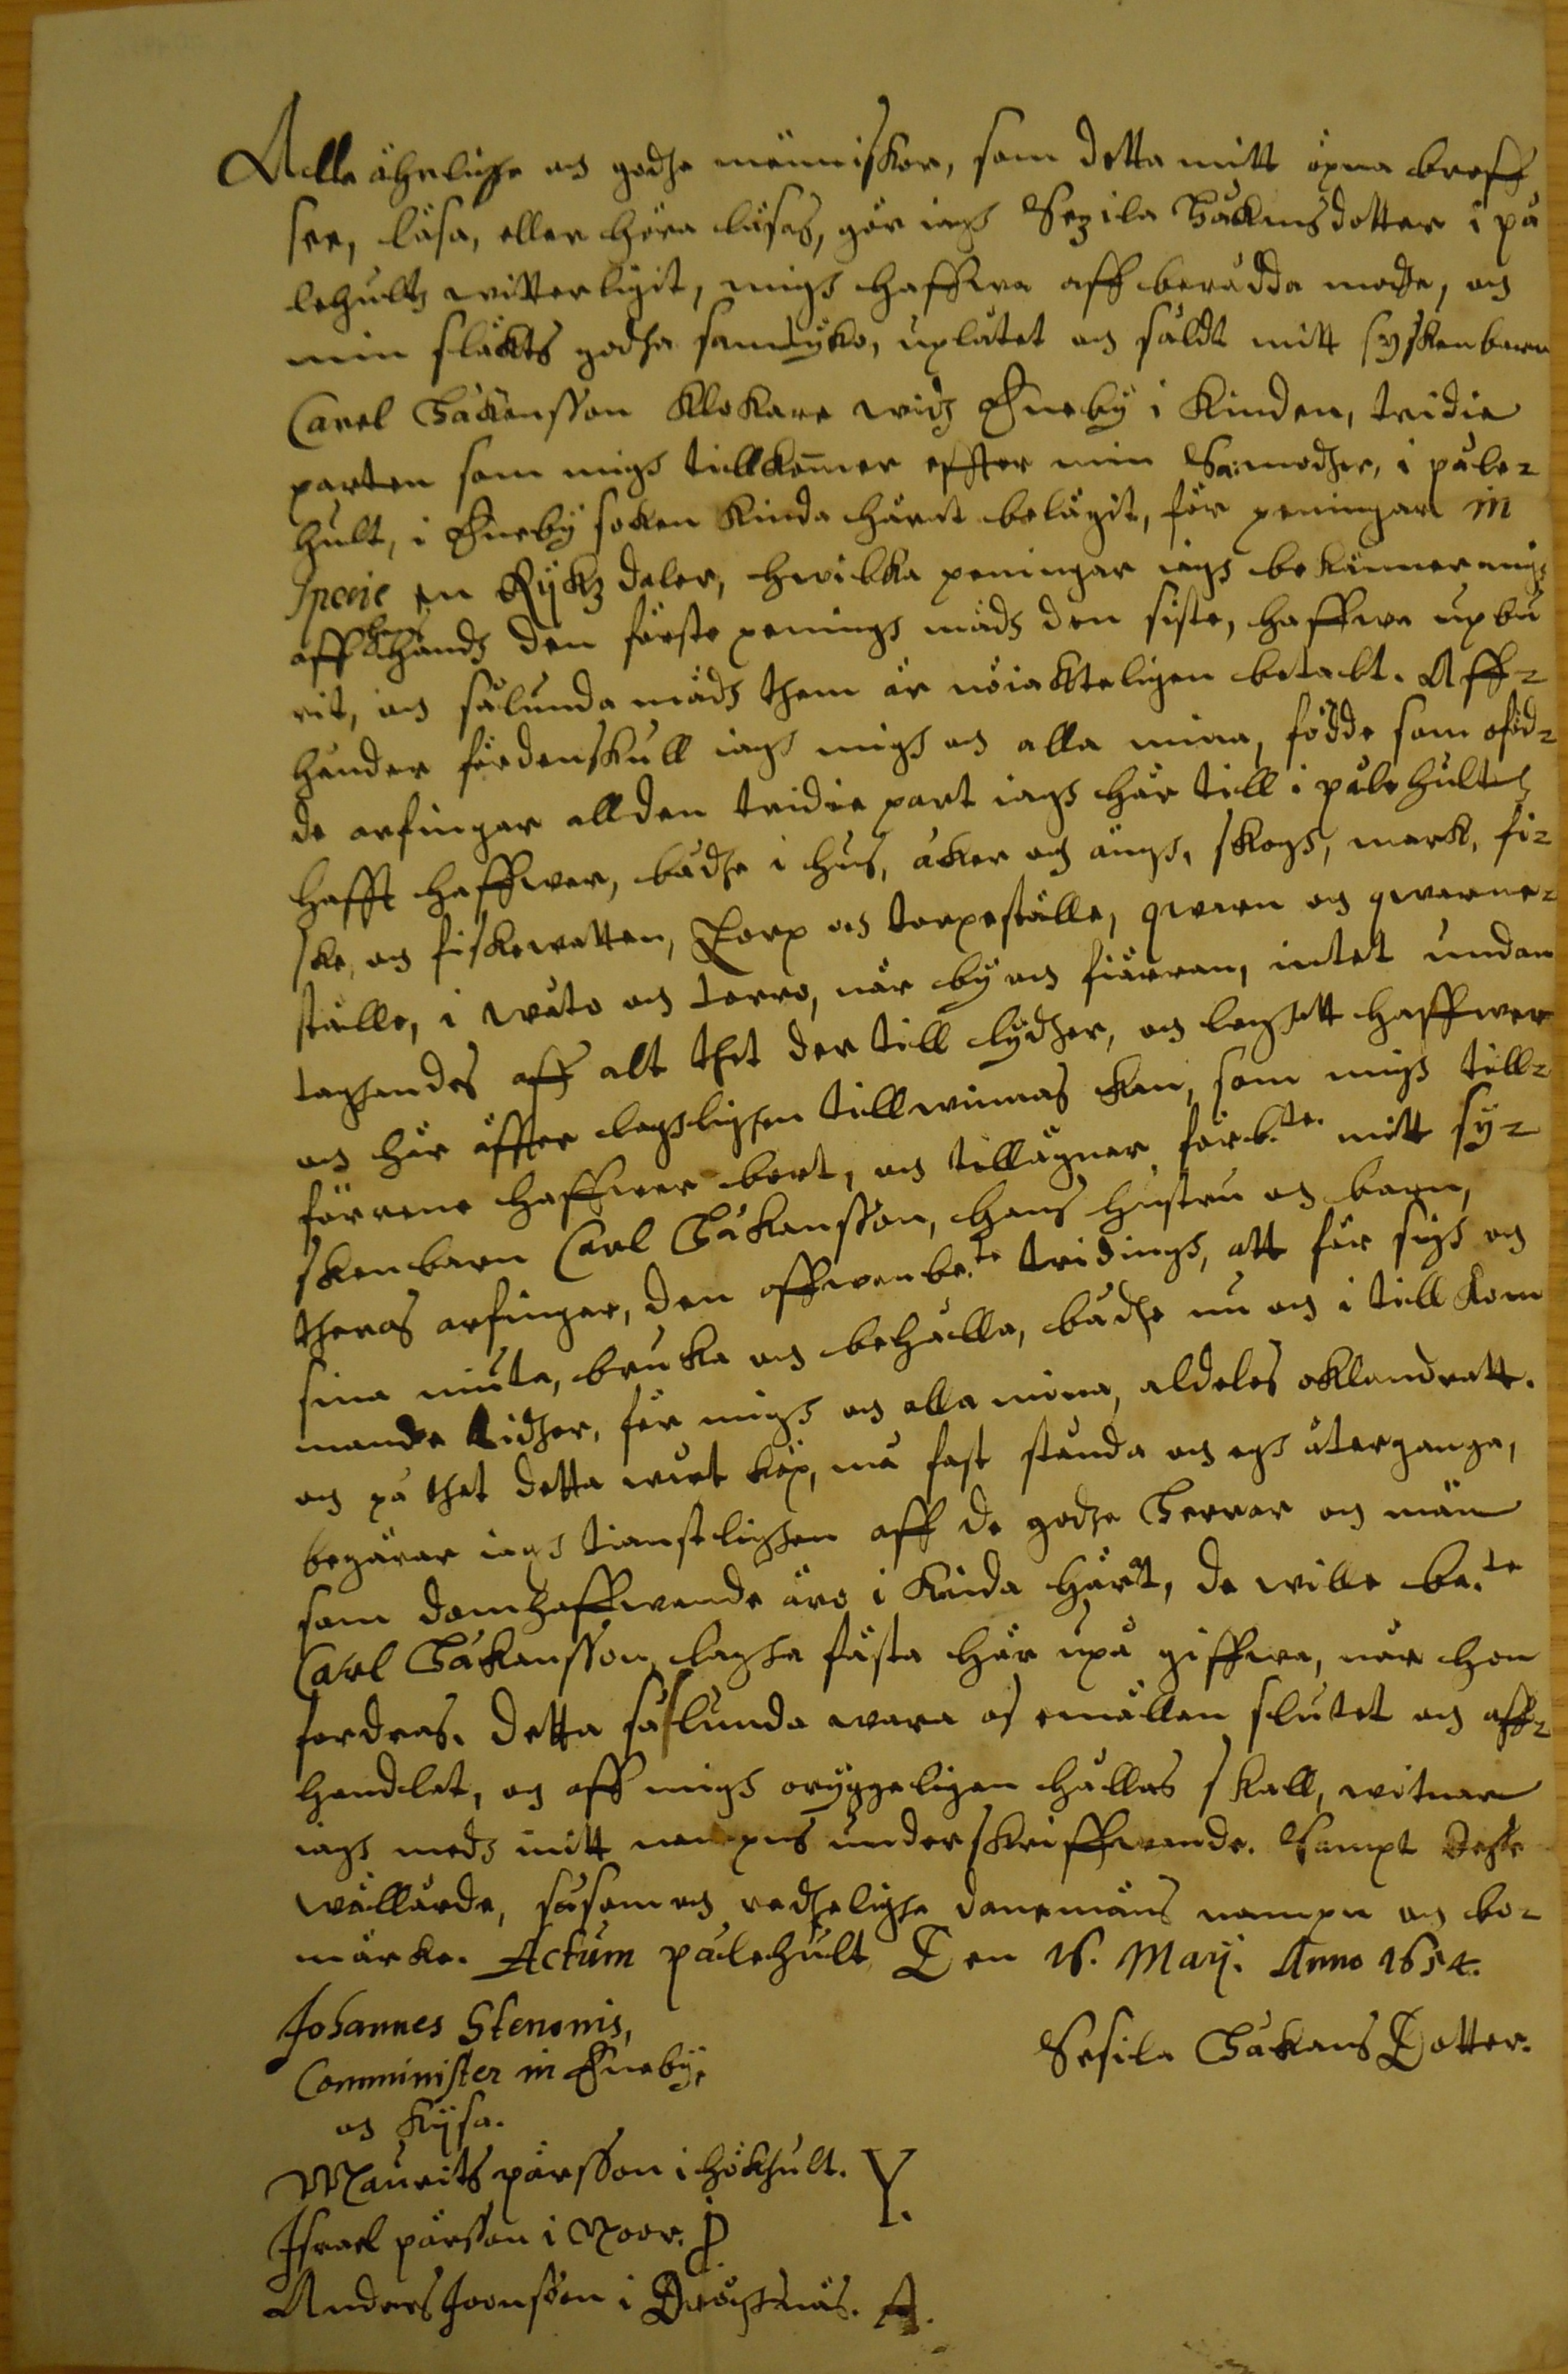 Alla ährlighe och godhe människor, som detta mitt öpna breff
see, läsa, eller höra läsas, gör iagh Sezila Håkansdotter i på
lehult witterligit, migh haffwa aff berådda mode, och
min släkts godha samtÿcke, uplåtet och såldt mitt syskenbarn
Carel Håkensson Klokare widh Eneby i Kinden, tridie
parten som migh tillkommer effter min Sa: modher, i påle-
hult, i Eneby soken Kinda häratt belägit, för peningar in
specie en Rÿkz daler, hwilka peningar iagh bekänner migh
aff hans hand den förste pening mädh den siste, haffwa upbu
rit, och sålunda mädh them är nöiakteligen betalt. Aff-
hender fördenskull iagh migh och alla mina, födde som oföd-
de arfingar all den tridie part iagh här till i pålehult
hafft haffwer, både i hus, åker och ängh, skogh, mark, fi-
ske, och fiskewatten, Torp och torpeställe, qwarn och qwarne-
ställe, i wåto och torro, när bÿ och fiärran, intet undan
taghandes aff alt thet der till lÿdher, och leghatt haffwer
och här äffter laghlighen tillwinnas kan, som migh till-
förenne haffwer bort, och tillägner förb:te mitt sÿ-
skenbarn Carl Håkansson, hans hustru och barn,
theras arfingar, den offwenbe:te tridingh, att för sigh och
sina niuta, bruka och behålla, bådhe nu och i tillkom
mande tidher, för migh och alla mina, aldeles oklandratt.
och på thet detta wårt köp, må fast stånda och egh återganga,
begärar iagh tienstlighen aff de godhe Herrar och män
som domhaffwande äro i Kinda härat, de wille be:te
Carl Håkansson lagha fästa här upå giffwa, när hon
fordras. Detta såslunda wara os emällan slutet och aff-
handlet, och aff migh orÿggeligen hållas skall, witnar
iagh medh mitt nampns underskriffwande. Sampt desse
wällärde, såsom och redhelighe danemäns nampn och bo-
märke. Actum pålehult Den 16. Maij. Anno 1654.
Johannes Stenonis,
Comminister in Enebÿ,
och Kÿsa.
Sesila Håkans Dotter.
Maurits pärsson i hökhult. Y.
Israel pärsson i Moor. P
Anders Joensson i Dröghsnäs. A.